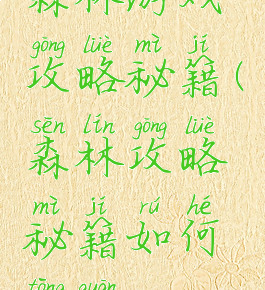 森林游戏
gōng lüè mì jí
攻略秘籍(
sēn lín gōng lüè
森林攻略
mì jí rú hé
秘籍如何
tōng guān